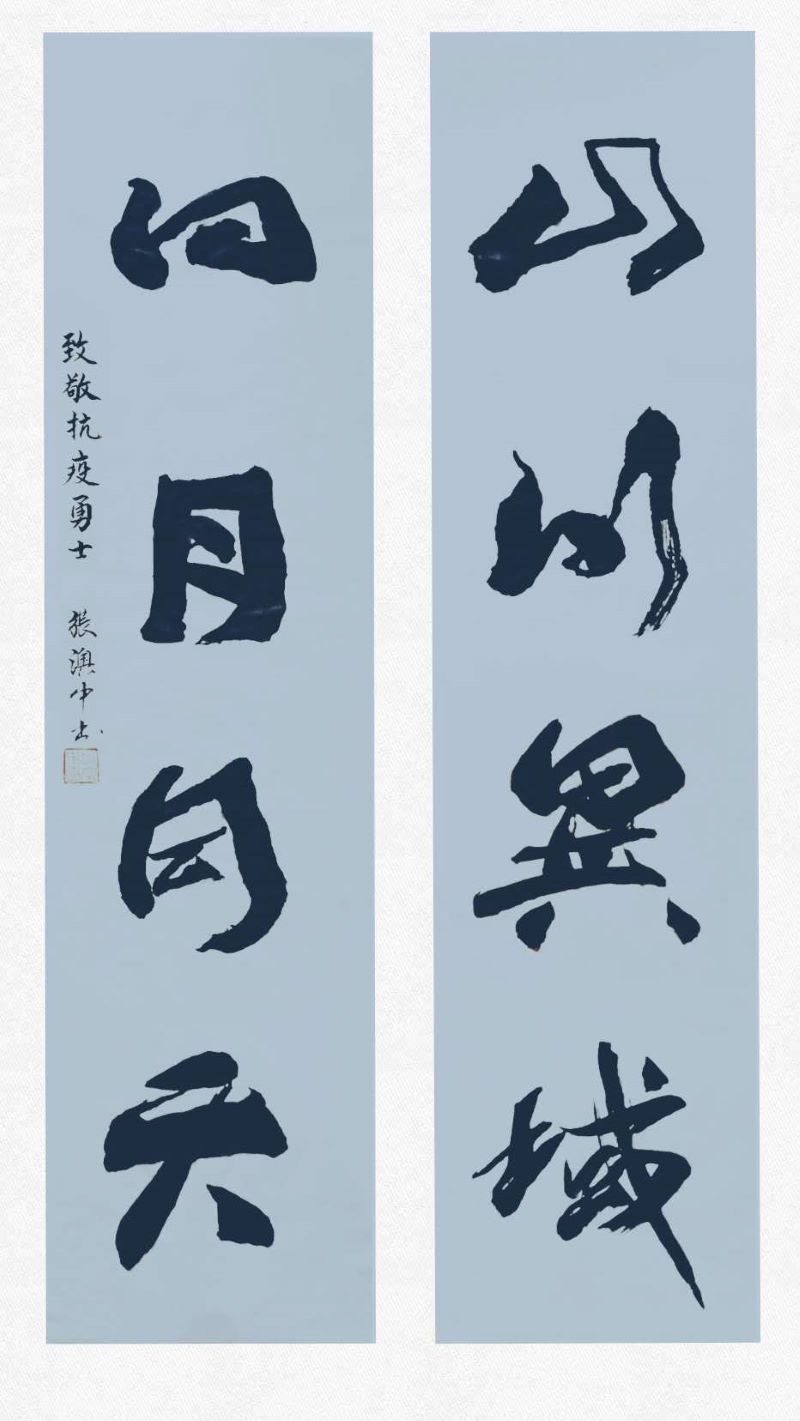 山川異域
日月同天
致敬抗疫勇士 張澳中书